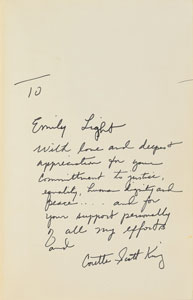 TO
Emily Light
With love and deepest
appreciation for your
committment to justice,
equality, human dignity and
peace.... and for
your support personally
in all my efforts
and
Coretta Scott King